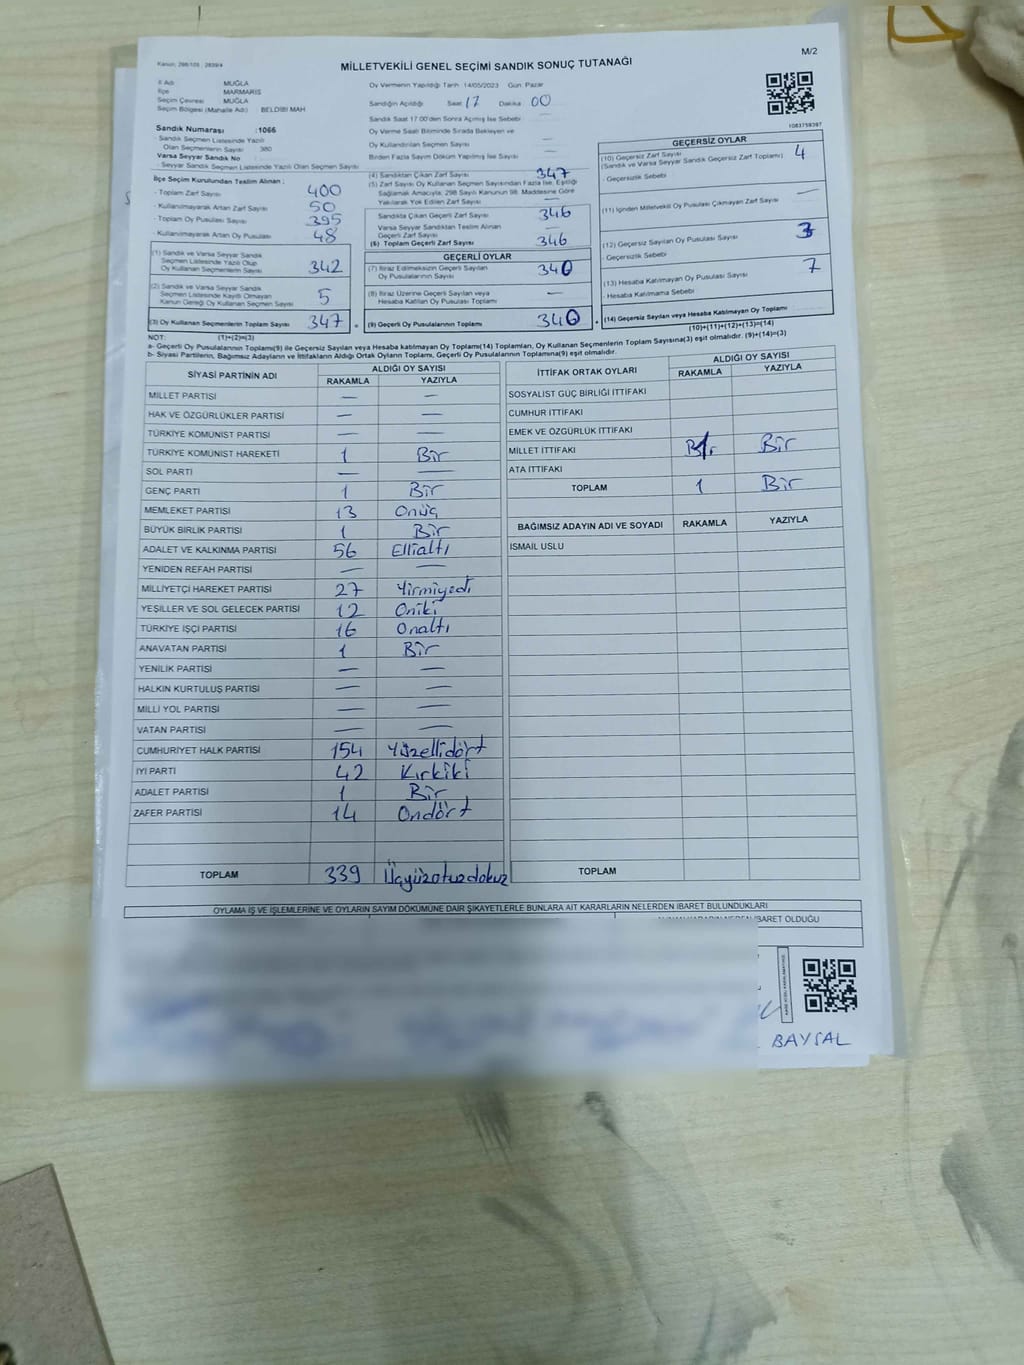 Kanun: 298/105 , 2839/4
M/2
MİLLETVEKİLİ GENEL SEÇİMİ SANDIK SONUÇ TUTANAĞI
İl Adı MUĞLA
İlçe MARMARİS
Seçim Çevresi MUĞLA
Seçim Bölgesi (Mahalle Adı) BELDİBİ MAH
Sandık Numarası :1066
Sandık Seçmen Listesinde Yazılı
Olan Seçmenlerin Sayısı 380
Varsa Seyyar Sandık No
Seyyar Sandık Seçmen Listesinde Yazılı Olan Seçmen Sayısı
İlçe Seçim Kurulundan Teslim Alınan ;
- Toplam Zarf Sayısı 400
- Kullanılmayarak Artan Zarf Sayısı 50
- Toplam Oy Pusulası Sayısı 395
- Kullanılmayarak Artan Oy Pusulası 48
(1) Sandık ve Varsa Seyyar Sandık
Seçmen Listesinde Yazılı Olup
Oy Kullanan Seçmenlerin Sayısı 342
(2) Sandık ve Varsa Seyyar Sandık
Seçmen Listesinde Kayıtlı Olmayan
Kanun Gereği Oy Kullanan Seçmen Sayısı 5
(3) Oy Kullanan Seçmenlerin Toplam Sayısı 347
Oy Vermenin Yapıldığı Tarih 14/05/2023 Gün: Pazar
Sandığın Açıldığı Saat 17 Dakika 00
Sandık Saat 17:00'den Sonra Açılmış İse Sebebi —
Oy Verme Saati Bitiminde Sırada Bekleyen ve
Oy Kullandırılan Seçmen Sayısı —
Birden Fazla Sayım Döküm Yapılmış İse Sayısı —
(4) Sandıktan Çıkan Zarf Sayısı 347
(5) Zarf Sayısı Oy Kullanan Seçmen Sayısından Fazla İse, Eşitliği
Sağlamak Amacıyla, 298 Sayılı Kanunun 98. Maddesine Göre
Yakılarak Yok Edilen Zarf Sayısı —
Sandıkta Çıkan Geçerli Zarf Sayısı 346
Varsa Seyyar Sandıktan Teslim Alınan
Geçerli Zarf Sayısı —
(6) Toplam Geçerli Zarf Sayısı 346
GEÇERLİ OYLAR
(7) İtiraz Edilmeksizin Geçerli Sayılan
Oy Pusulalarının Sayısı 340
(8) İtiraz Üzerine Geçerli Sayılan veya
Hesaba Katılan Oy Pusulası Toplamı —
(9) Geçerli Oy Pusulalarının Toplamı 340
1083759397
GEÇERSİZ OYLAR
(10) Geçersiz Zarf Sayısı
(Sandık ve Varsa Seyyar Sandık Geçersiz Zarf Toplamı) 4
- Geçersizlik Sebebi
(11) İçinden Milletvekili Oy Pusulası Çıkmayan Zarf Sayısı —
(12) Geçersiz Sayılan Oy Pusulası Sayısı 3
- Geçersizlik Sebebi
(13) Hesaba Katılmayan Oy Pusulası Sayısı 7
- Hesaba Katılmama Sebebi
(14) Geçersiz Sayılan veya Hesaba Katılmayan Oy Toplamı
(10)+(11)+(12)+(13)=(14)
NOT: (1)+(2)=(3)
a- Geçerli Oy Pusulalarının Toplamı(9) ile Geçersiz Sayılan veya Hesaba katılmayan Oy Toplamı(14) Toplamları, Oy Kullanan Seçmenlerin Toplam Sayısına(3) eşit olmalıdır. (9)+(14)=(3)
b- Siyasi Partilerin, Bağımsız Adayların ve İttifakların Aldığı Ortak Oyların Toplamı, Geçerli Oy Pusulalarının Toplamına(9) eşit olmalıdır.
SİYASİ PARTİNİN ADI ALDIĞI OY SAYISI
RAKAMLA YAZIYLA
MİLLET PARTİSİ — —
HAK VE ÖZGÜRLÜKLER PARTİSİ — —
TÜRKİYE KOMÜNİST PARTİSİ — —
TÜRKİYE KOMÜNİST HAREKETİ 1 Bir
SOL PARTİ — —
GENÇ PARTİ 1 Bir
MEMLEKET PARTİSİ 13 Onüç
BÜYÜK BİRLİK PARTİSİ 1 Bir
ADALET VE KALKINMA PARTİSİ 56 Ellialtı
YENİDEN REFAH PARTİSİ — —
MİLLİYETÇİ HAREKET PARTİSİ 27 Yirmiyedi
YEŞİLLER VE SOL GELECEK PARTİSİ 12 Oniki
TÜRKİYE İŞÇİ PARTİSİ 16 Onaltı
ANAVATAN PARTİSİ 1 Bir
YENİLİK PARTİSİ — —
HALKIN KURTULUŞ PARTİSİ — —
MİLLİ YOL PARTİSİ — —
VATAN PARTİSİ — —
CUMHURİYET HALK PARTİSİ 154 Yüzellidört
İYİ PARTİ 42 Kırkiki
ADALET PARTİSİ 1 Bir
ZAFER PARTİSİ 14 Ondört
TOPLAM 339 Üçyüzotuzdokuz
İTTİFAK ORTAK OYLARI ALDIĞI OY SAYISI
RAKAMLA YAZIYLA
SOSYALİST GÜÇ BİRLİĞİ İTTİFAKI
CUMHUR İTTİFAKI
EMEK VE ÖZGÜRLÜK İTTİFAKI
MİLLET İTTİFAKI 1 Bir
ATA İTTİFAKI
TOPLAM 1 Bir
BAĞIMSIZ ADAYIN ADI VE SOYADI RAKAMLA YAZIYLA
İSMAİL USLU
TOPLAM
OYLAMA İŞ VE İŞLEMLERİNE VE OYLARIN SAYIM DÖKÜMÜNE DAİR ŞİKAYETLERLE BUNLARA AİT KARARLARIN NELERDEN İBARET BULUNDUKLARI
NEDEN İBARET OLDUĞU
BAYSAL